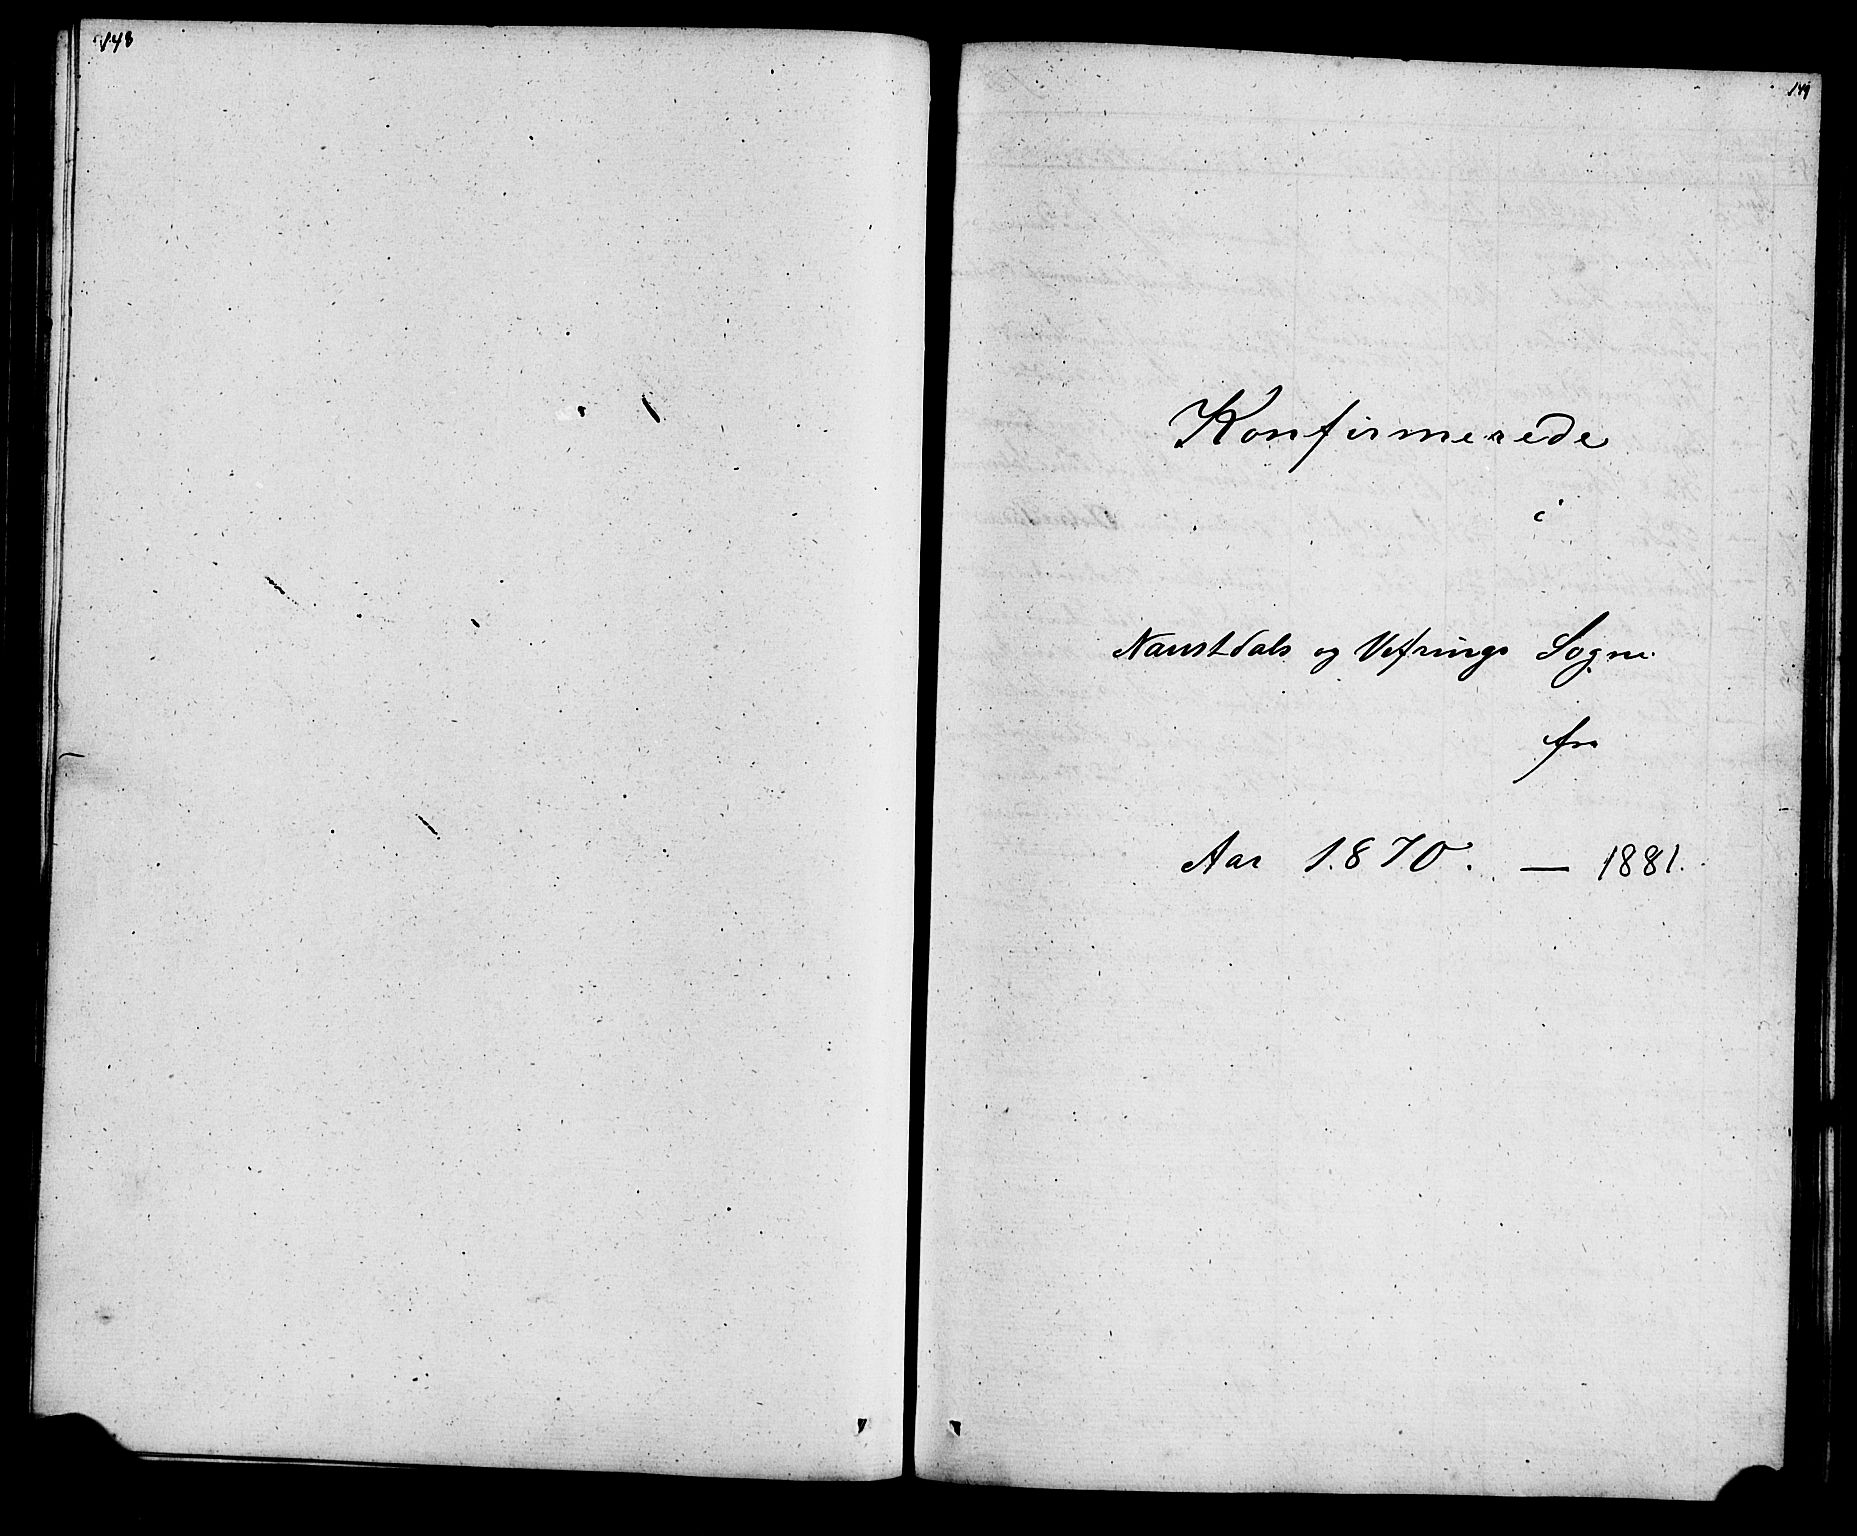 148
149
Konfirmerede
i
Naustdals og Vefrings Sogne
fra
Aar 1870. — 1881.